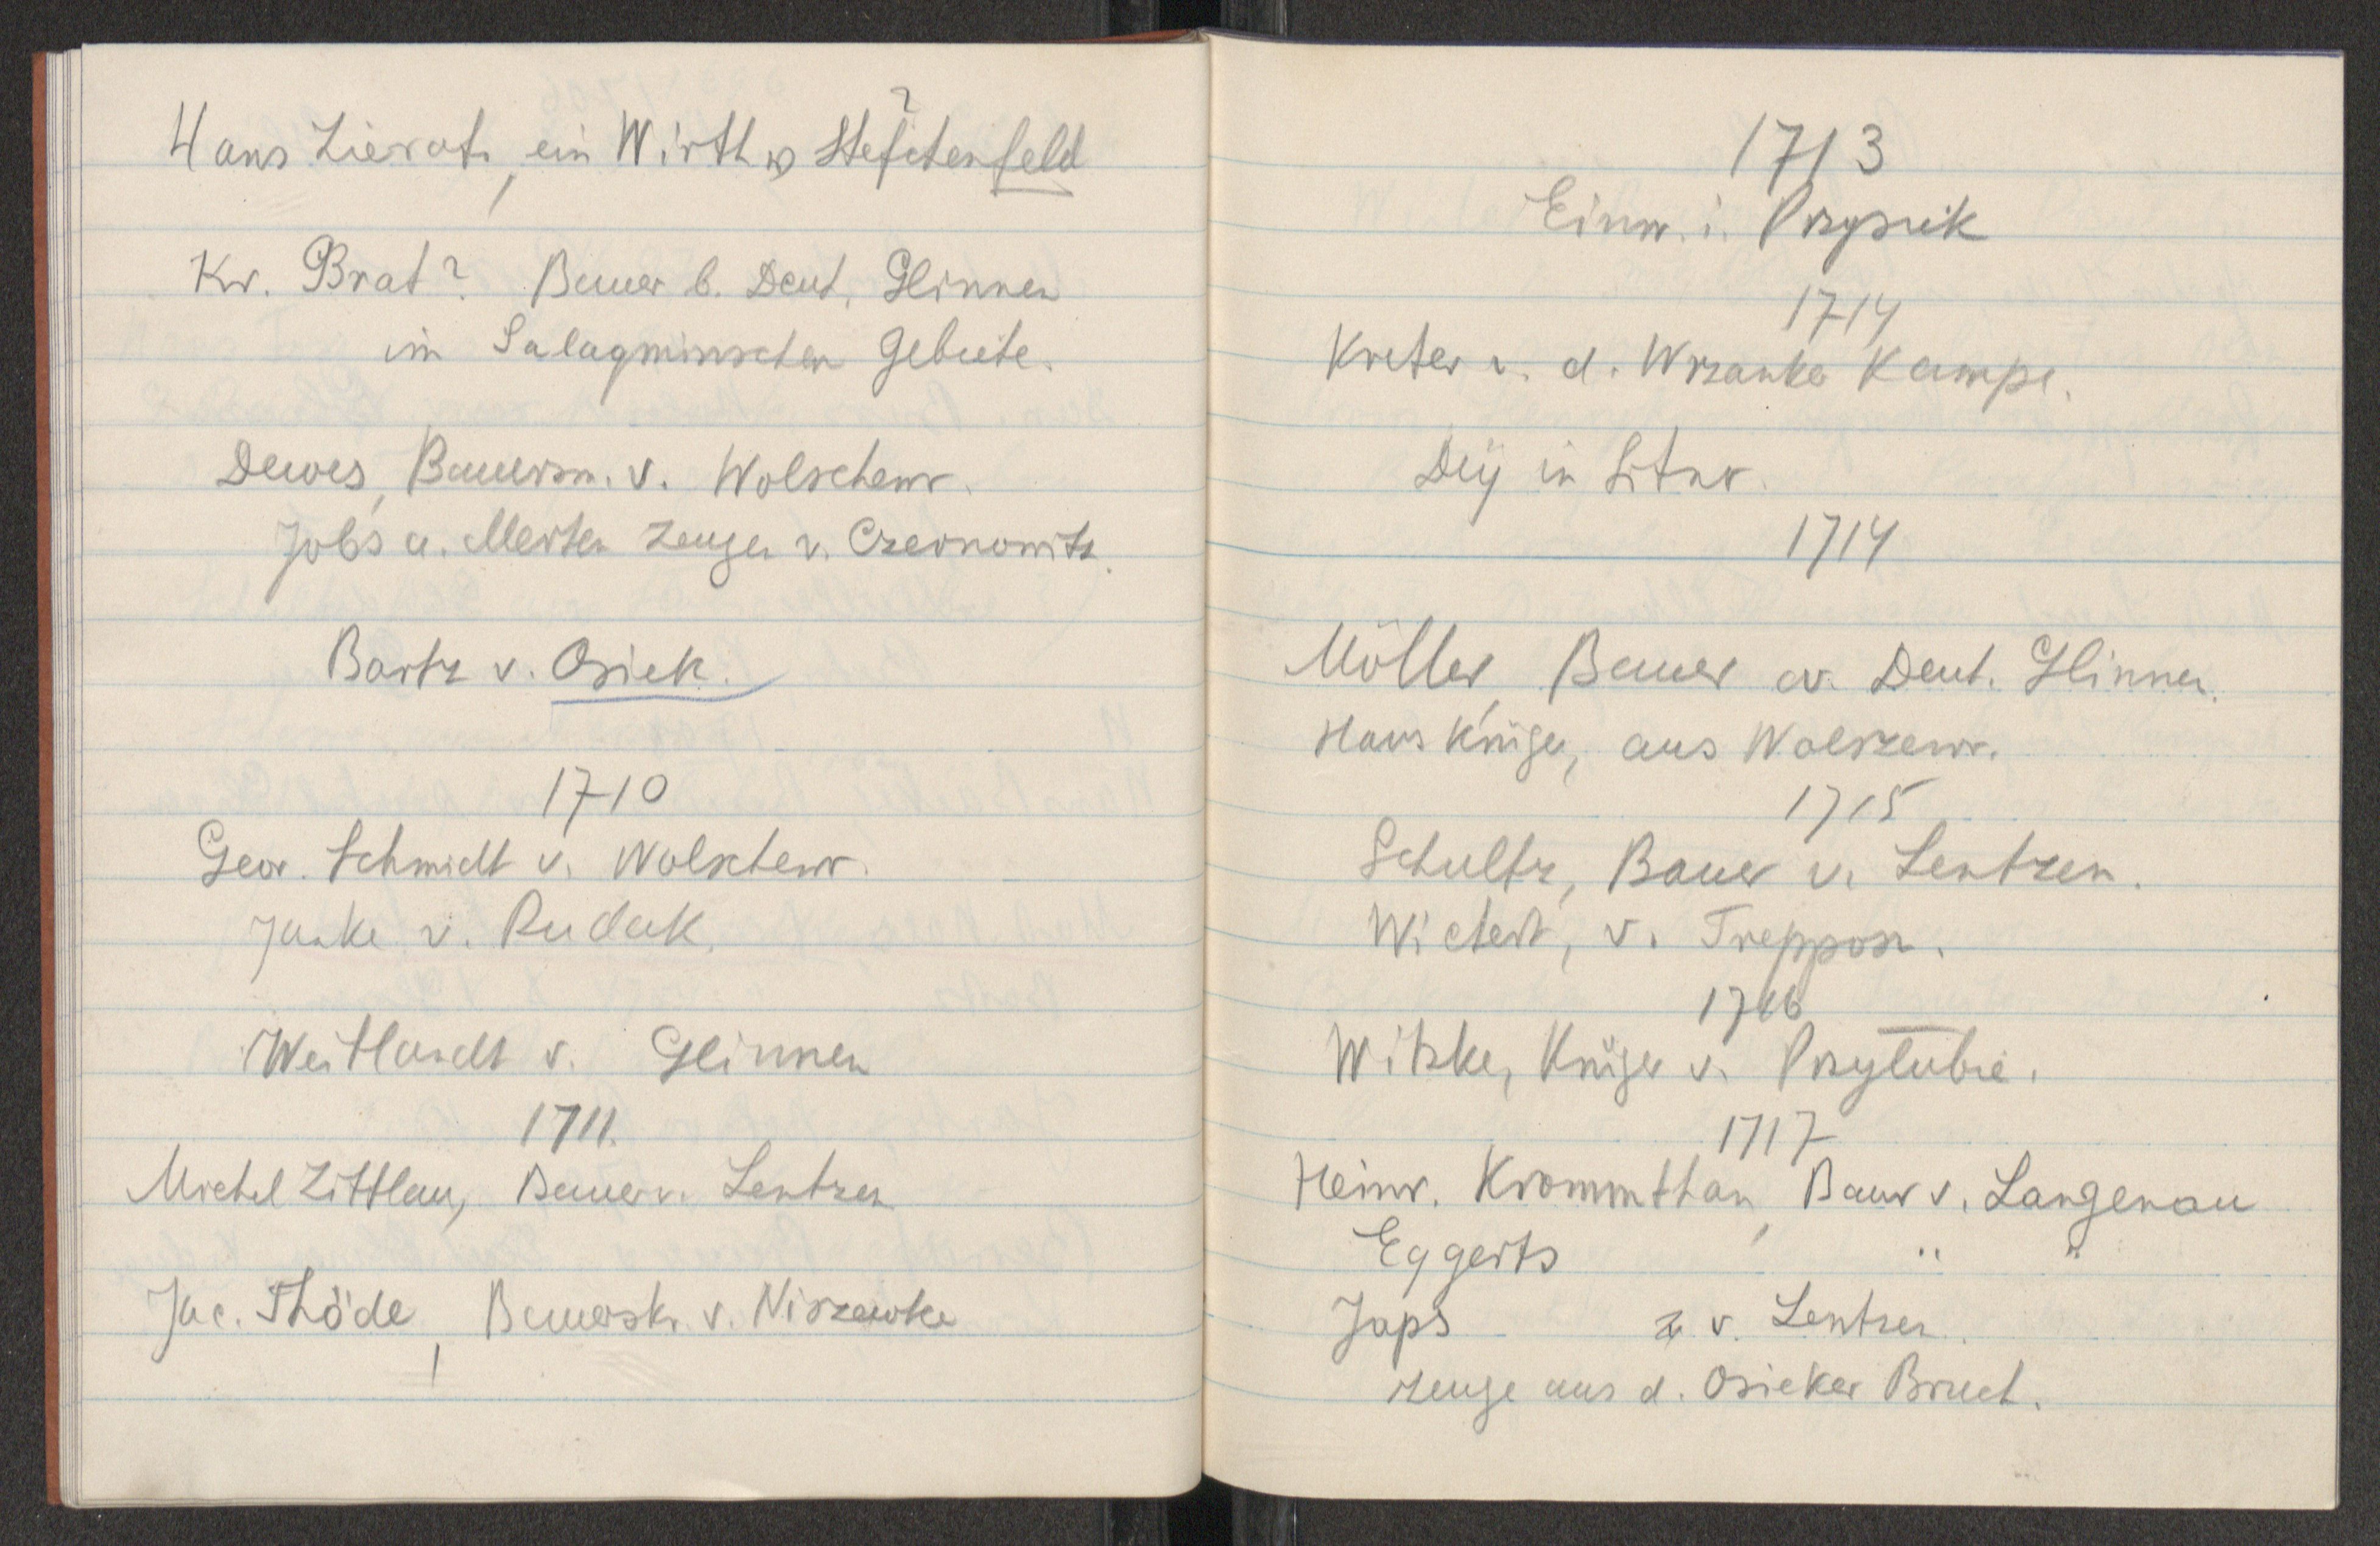 ?
Hans Zierat, ein Wirth v Stefchenfeld
Kr. Brat? Bauer b. Deut. Glinnen
im Salagminschen Gebiete.
Dewes, Bauersm. v. Wolschew.
Jobs u. Merten Zeugen v. Czernowitz.
Bartz v. Osiek.
1710
Geor. Schmidt v. Wolschew.
Janke v. Rudak.
Weitlandt v. Glinnen
1711.
Michel Zittlau, Bauer v. Lentzen
Jac. Thöde, Bauersk. v. Niszewke
1713
Einw. i. Przysiek
1714
Kreter v. d. Wrzanke Kampe.
Dey in Sitno.
1714
Möller, Bauer av. Deut. Glinnen.
Hans Krüger, aus Wolszew.
1715
Schultz, Bauer v. Lentzen.
Wichert, v. Trepposz.
1716
Witzke, Krüger v. Przylubie.
1717
Heinr. Krommthan, Baur v. Langenau
Eggerts " "
Japs z v. Lentzen.
Zeuge aus d. Osieker Bruch.